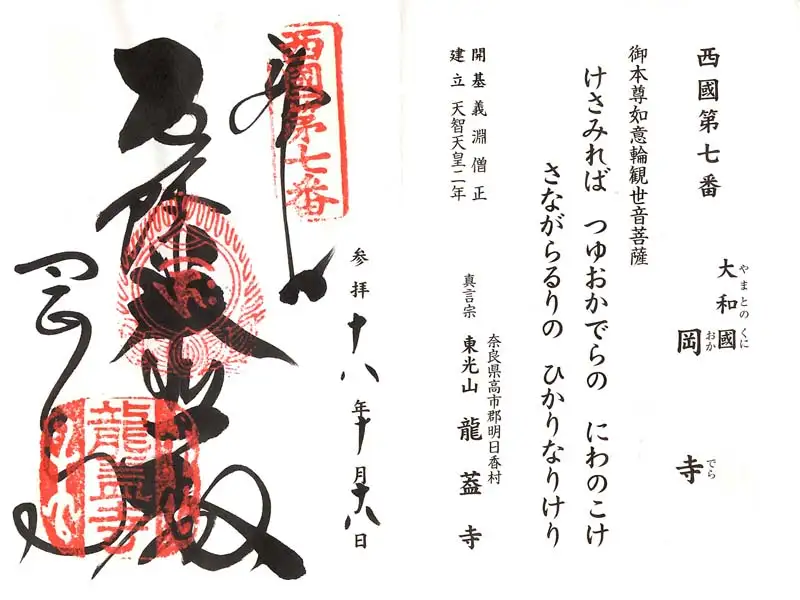 西國第七番
大和國
やまとのくに
岡寺
おかでら
御本尊如意輪観世音菩薩
けさみれば つゆおかでらの にわのこけ
さながらるりの ひかりなりけり
開基義淵僧正
建立天智天皇二年
奈良県高市郡明日香村
真言宗 東光山 龍葢寺
参拝十八年十月十八日
西國第七番
龍蓋寺